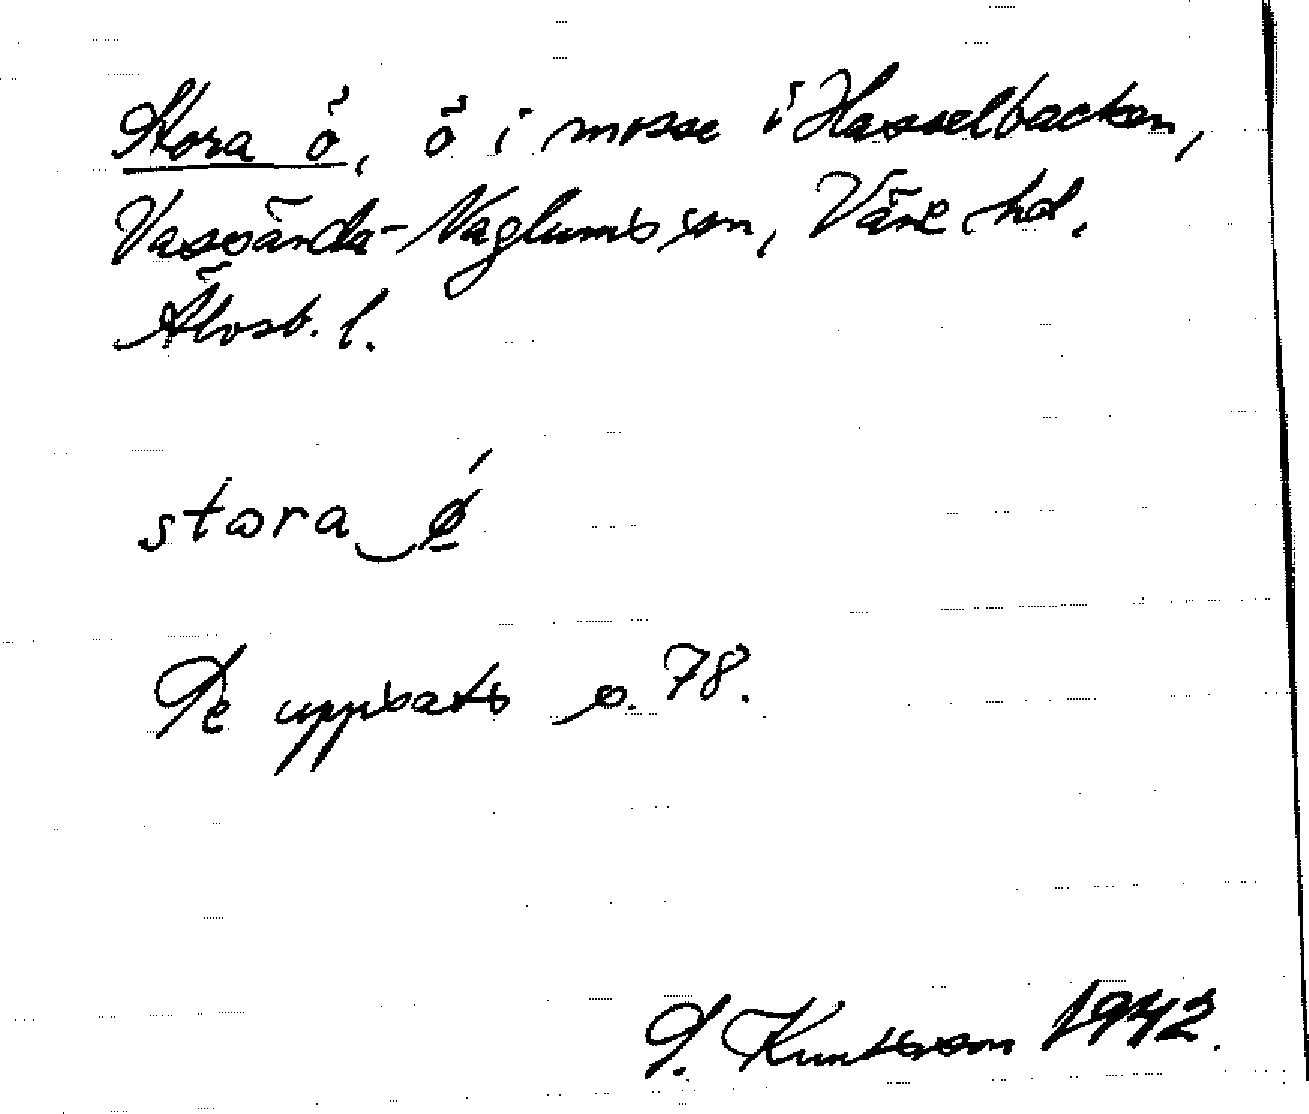 Stora ö, ö i mosse i Hasselbacken,
Vassända-Naglums sn, Väne hd.
Älvsb. l.
stora ǿ
Se uppsats s. 78.
S. Knutsson 1942.